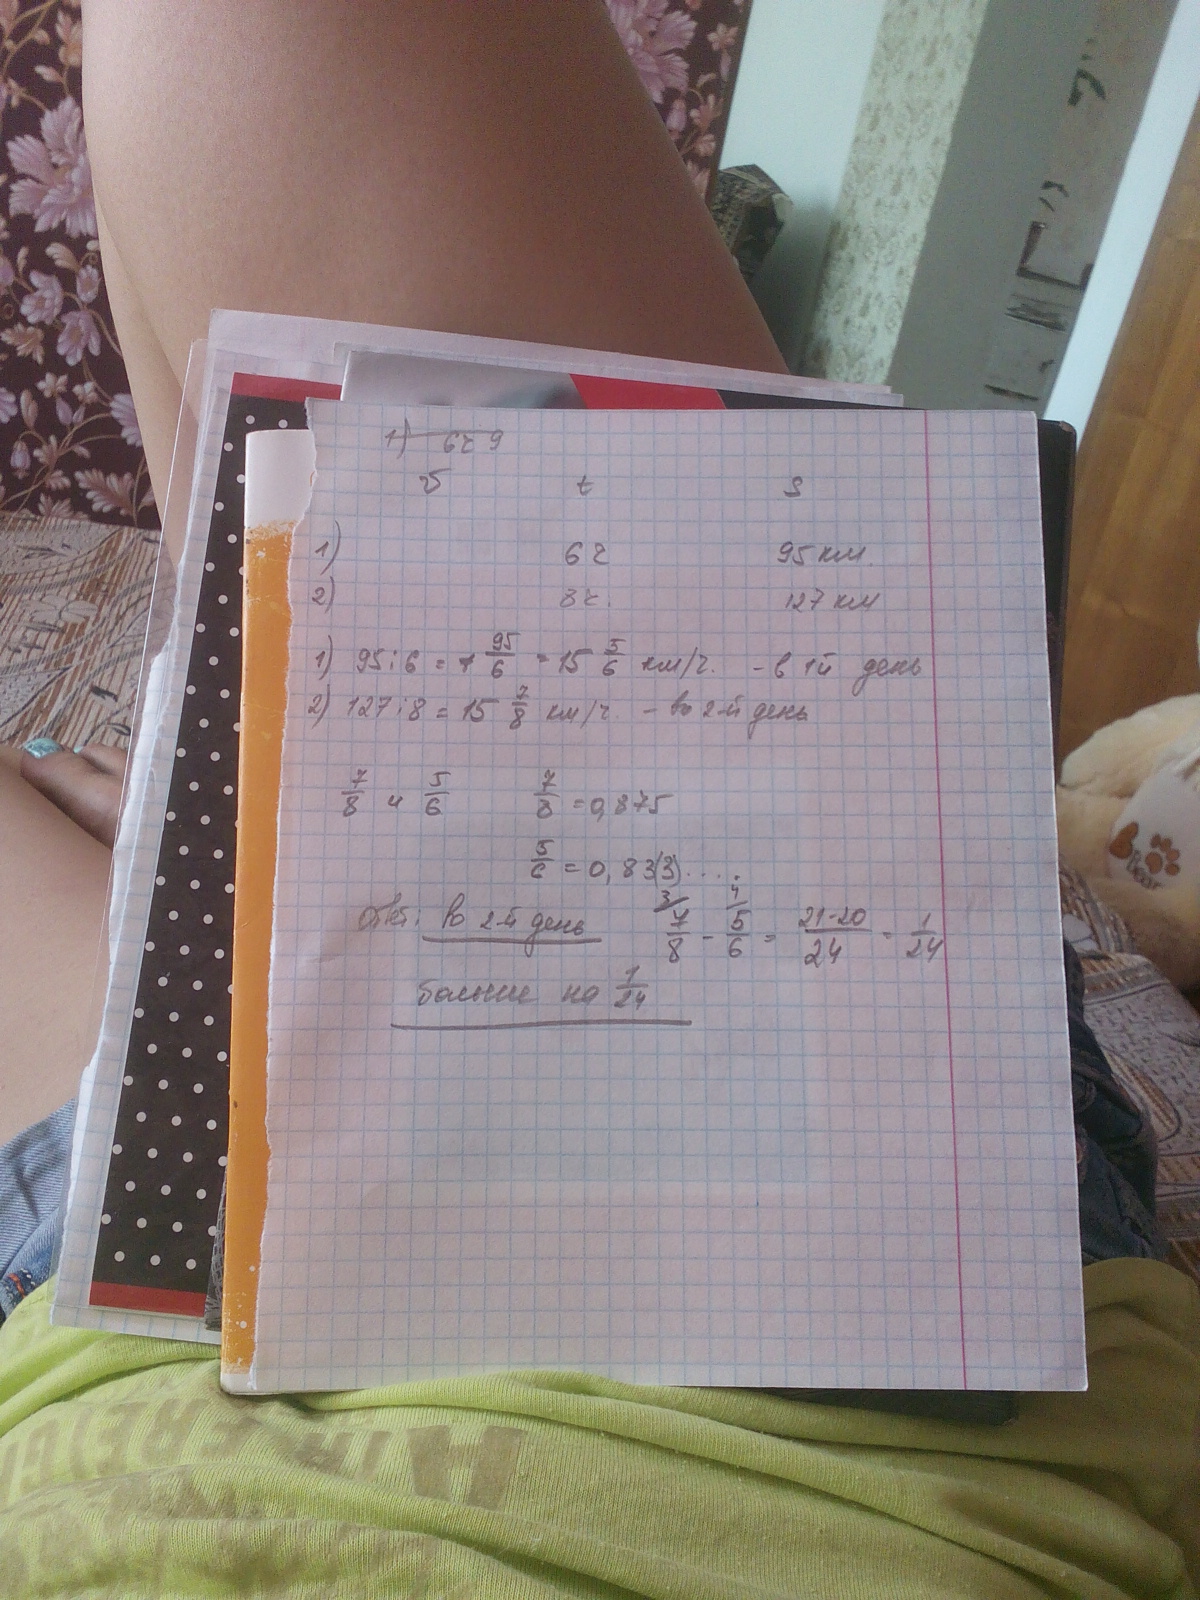 1) 6ч 9
v t S
1) 6ч 95 км.
2) 8ч. 127 км
1) 95:6 = 95/6 = 15 5/6 км/ч. - в 1й день
2) 127:8 = 15 7/8 км/ч. - во 2-й день
7/8 и 5/6 7/8 = 0,875
5/6 = 0,83(3)....
Ответ: во 2-й день 7/8 - 5/6 = 21-20/24 = 1/24
больше на 1/24
3/ 4/
Bear